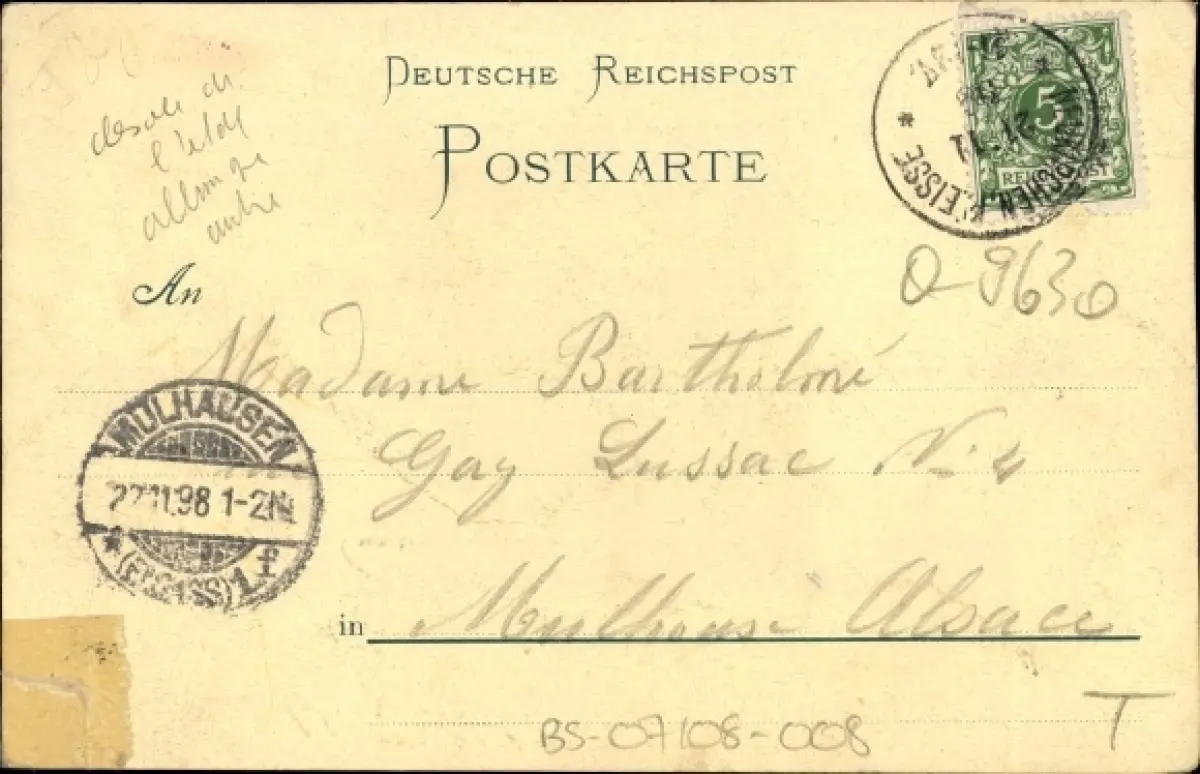 DEUTSCHE REICHSPOST
POSTKARTE
5
REICHSPOST
l'etat
album que
An
O-9630
Madame Bartholmé
Gay Lussac N. 4
MÜLHAUSEN
22.11.98 1-2N
(ELSASS) 1 f
in Mulhouse Alsace
BS-07108-008
T